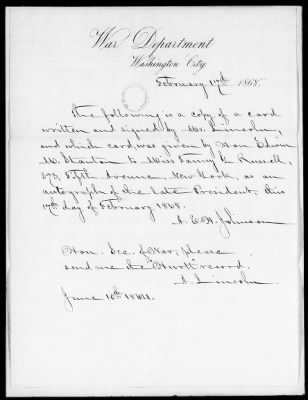 War Department
Washington City
February 17th 1868.
The following is a copy of a card
written and signed by Mr. Lincoln,
and which card was given by Hon. Edwin
M. Stanton to Miss Fanny Russell,
Fifth Avenue, New York, as an
autograph of the late President, this
17th day of February 1868.
A. E. H. Johnson
Hon. Sec. of War, please
send me the "Hurtt" record.
A. Lincoln.
June 10th 1864.